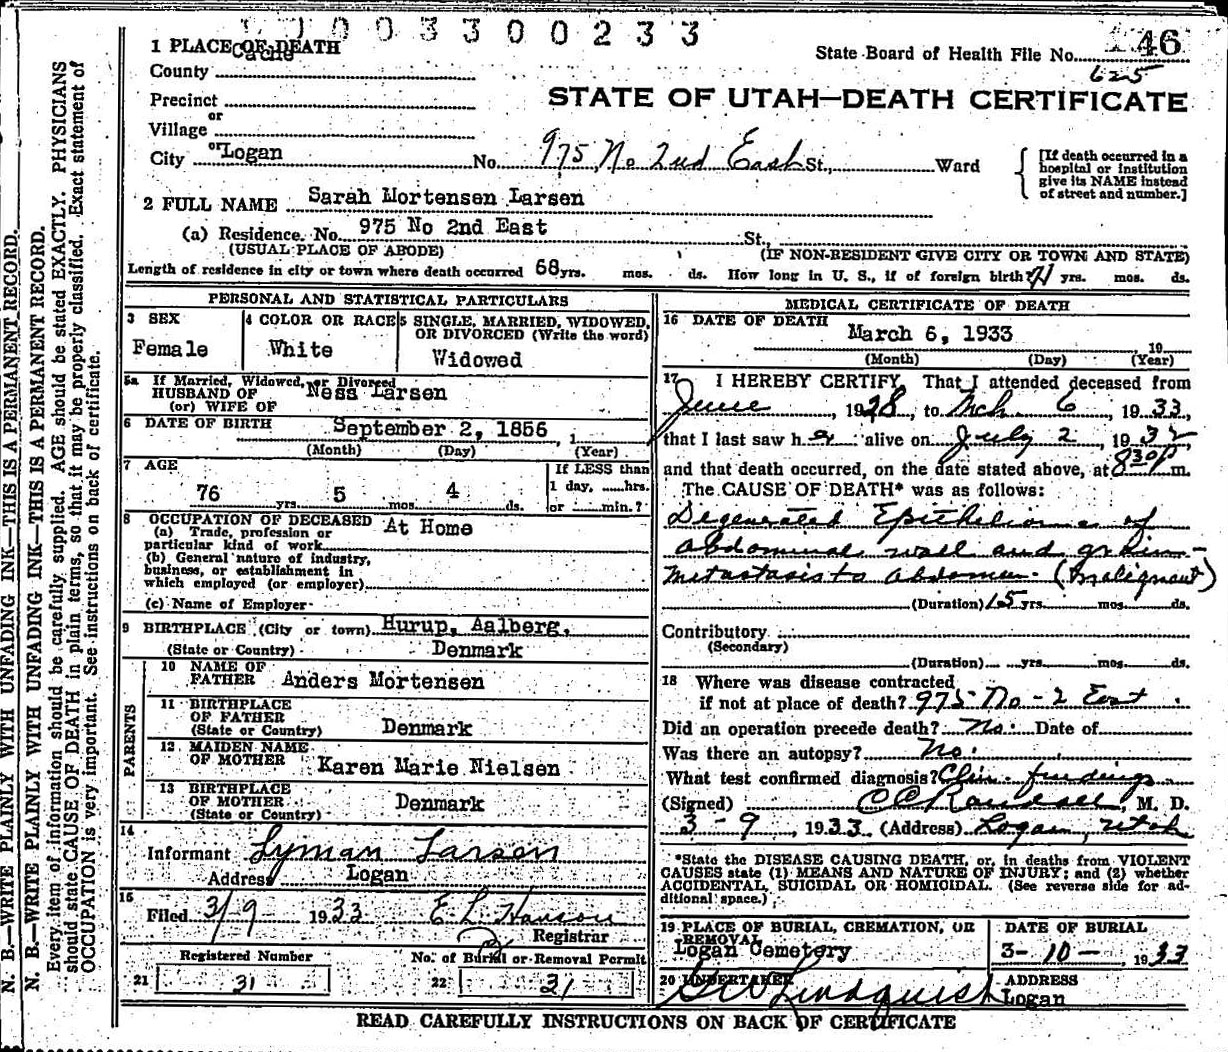 1 0 0 3 3 0 0 2 3 3
1 PLACE OF DEATH
State Board of Health File No. 46
Cache
County
625
STATE OF UTAH—DEATH CERTIFICATE
Precinct
or
Village
or
City Logan No. 975 No 2nd East St., Ward
[If death occurred in a hospital or institution give its NAME instead of street and number.]
2 FULL NAME Sarah Mortensen Larsen
(a) Residence. No. 975 No 2nd East St.,
(USUAL PLACE OF ABODE) (IF NON-RESIDENT GIVE CITY OR TOWN AND STATE)
Length of residence in city or town where death occurred 68 yrs. mos. ds. How long in U. S., if of foreign birth? 71 yrs. mos. ds.
PERSONAL AND STATISTICAL PARTICULARS
3 SEX
Female
4 COLOR OR RACE
White
5 SINGLE, MARRIED, WIDOWED,
OR DIVORCED (Write the word)
Widowed
5a If Married, Widowed, or Divorced
HUSBAND OF
(or) WIFE OF
Ness Larsen
6 DATE OF BIRTH September 2, 1856, 1
(Month) (Day) (Year)
7 AGE
76 yrs. 5 mos. 4 ds.
If LESS than
1 day, ......hrs.
or ......min.?
8 OCCUPATION OF DECEASED At Home
(a) Trade, profession or
particular kind of work
(b) General nature of industry,
business, or establishment in
which employed (or employer)
(c) Name of Employer
9 BIRTHPLACE (City or town) Hurup, Aalberg,
(State or Country) Denmark
PARENTS
10 NAME OF
FATHER Anders Mortensen
11 BIRTHPLACE
OF FATHER
(State or Country) Denmark
12 MAIDEN NAME
OF MOTHER Karen Marie Nielsen
13 BIRTHPLACE
OF MOTHER
(State or Country) Denmark
14
Informant Lyman Larson
Address Logan
15
Filed 3/9 1933 E. L. Hanson
Registrar
Registered Number
21 31
No. of Burial or Removal Permit
22 31
MEDICAL CERTIFICATE OF DEATH
16 DATE OF DEATH
March 6, 1933 19
(Month) (Day) (Year)
17 I HEREBY CERTIFY, That I attended deceased from
June, 1928, to Mch. 6, 1933,
that I last saw her alive on July 2, 1932
and that death occurred, on the date stated above, at 8 30 P m.
The CAUSE OF DEATH* was as follows:
Degenerated Epithelioma of
abdominal wall and groin-
metastasis to abdomen. (Malignant)
(Duration) 15 yrs. mos. ds.
Contributory
(Secondary)
(Duration) yrs. mos. ds.
18 Where was disease contracted
if not at place of death? 975 No - 2 East
Did an operation precede death? No. Date of
Was there an autopsy? No.
What test confirmed diagnosis? Clin. findings
(Signed) C C Randall, M. D.
3 - 9, 1933 (Address) Logan, Utah
*State the DISEASE CAUSING DEATH, or, in deaths from VIOLENT
CAUSES state (1) MEANS AND NATURE OF INJURY; and (2) whether
ACCIDENTAL, SUICIDAL OR HOMICIDAL. (See reverse side for ad-
ditional space.)
19 PLACE OF BURIAL, CREMATION, OR
REMOVAL
Logan Cemetery
DATE OF BURIAL
3- 10 - 1933
20 UNDERTAKER
Lindquist
ADDRESS
Logan
READ CAREFULLY INSTRUCTIONS ON BACK OF CERTIFICATE
N. B.—WRITE PLAINLY WITH UNFADING INK—THIS IS A PERMANENT RECORD.
N. B.—WRITE PLAINLY WITH UNFADING INK—THIS IS A PERMANENT RECORD.
Every item of information should be carefully supplied. AGE should be stated EXACTLY. PHYSICIANS
should state CAUSE OF DEATH in plain terms, so that it may be properly classified. Exact statement of
OCCUPATION is very important. See instructions on back of certificate.